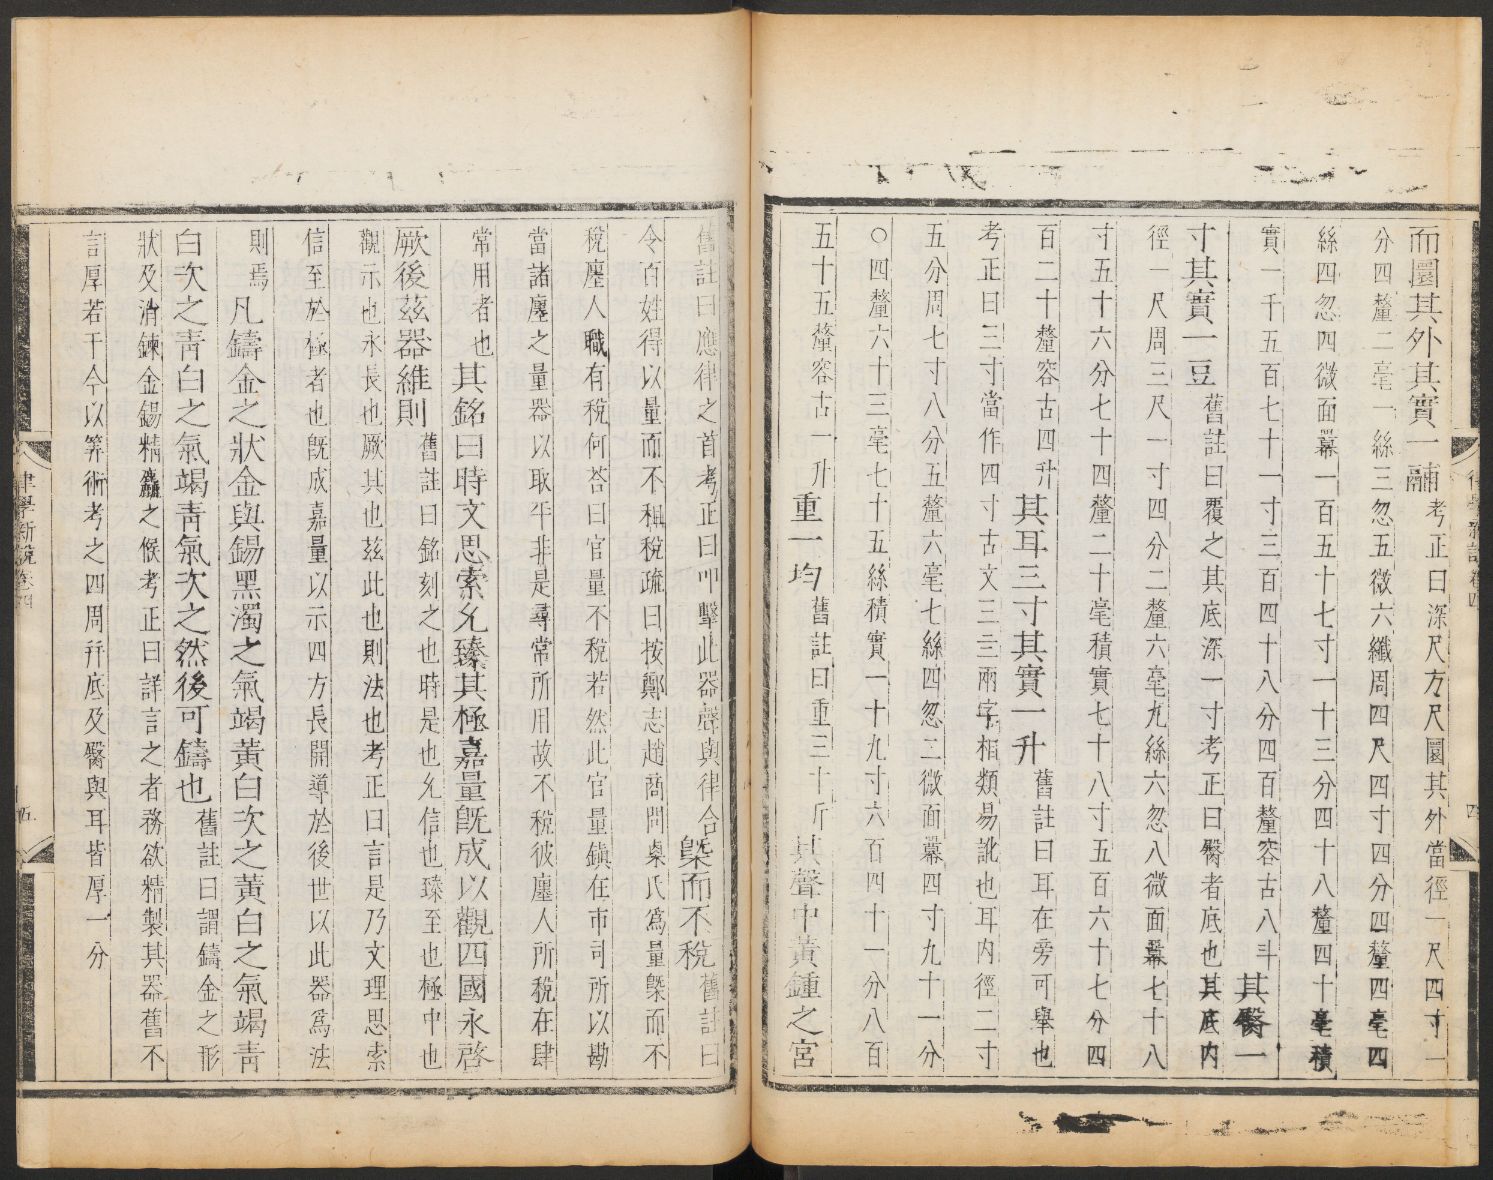 而圜其外其實一鬴考正曰深尺方尺圜其外當徑一尺四寸一
分四釐二毫一絲三忽五微六纖周四尺四寸四分四釐四毫四
絲四忽四微面冪一百五十七寸一十三分四十八釐四十毫積
實一千五百七十一寸三百四十八分四百釐容古八斗其臋一
寸其實一豆舊註曰覆之其底深一寸考正曰臋者底也其底内
徑一尺周三尺一寸四分二釐六毫九絲六忽八微面冪七十八
寸五十六分七十四釐二十毫積實七十八寸五百六十七分四
百二十釐容古四升其耳三寸其實一升舊註曰耳在旁可舉也
考正曰三寸當作四寸古文三亖兩字相類易訛也耳内徑二寸
五分周七寸八分五釐六毫七絲四忽二微面冪四寸九十一分
〇四釐六十三毫七十五絲積實一十九寸六百四十一分八百
五十五釐容古一升重一均舊註曰重三十斤其聲中黃鍾之宮
律學新說卷四
四
舊註曰應律之首考正曰叩擊此器聲與律合槩而不稅舊註曰
令百姓得以量而不租稅疏曰按鄭志趙商問㮚氏爲量槩而不
稅廛人職有稅何荅曰官量不稅若然此官量鎭在市司所以勘
當諸廛之量器以取平非是尋常所用故不稅彼廛人所稅在肆
常用者也其銘曰時文思索允臻其極嘉量旣成以觀四國永啓
厥後茲器維則舊註曰銘刻之也時是也允信也臻至也極中也
觀示也永長也厥其也茲此也則法也考正曰言是乃文理思索
信至於極者也旣成嘉量以示四方長開導於後世以此器爲法
則焉凡鑄金之狀金與錫黑濁之氣竭黃白次之黃白之氣竭靑
白次之靑白之氣竭靑氣次之然後可鑄也舊註曰謂鑄金之形
狀及消鍊金錫精麤之候考正曰詳言之者務欲精製其器舊不
言厚若干今以筭術考之四周幷底及臋與耳皆厚一分
律學新說卷四
五